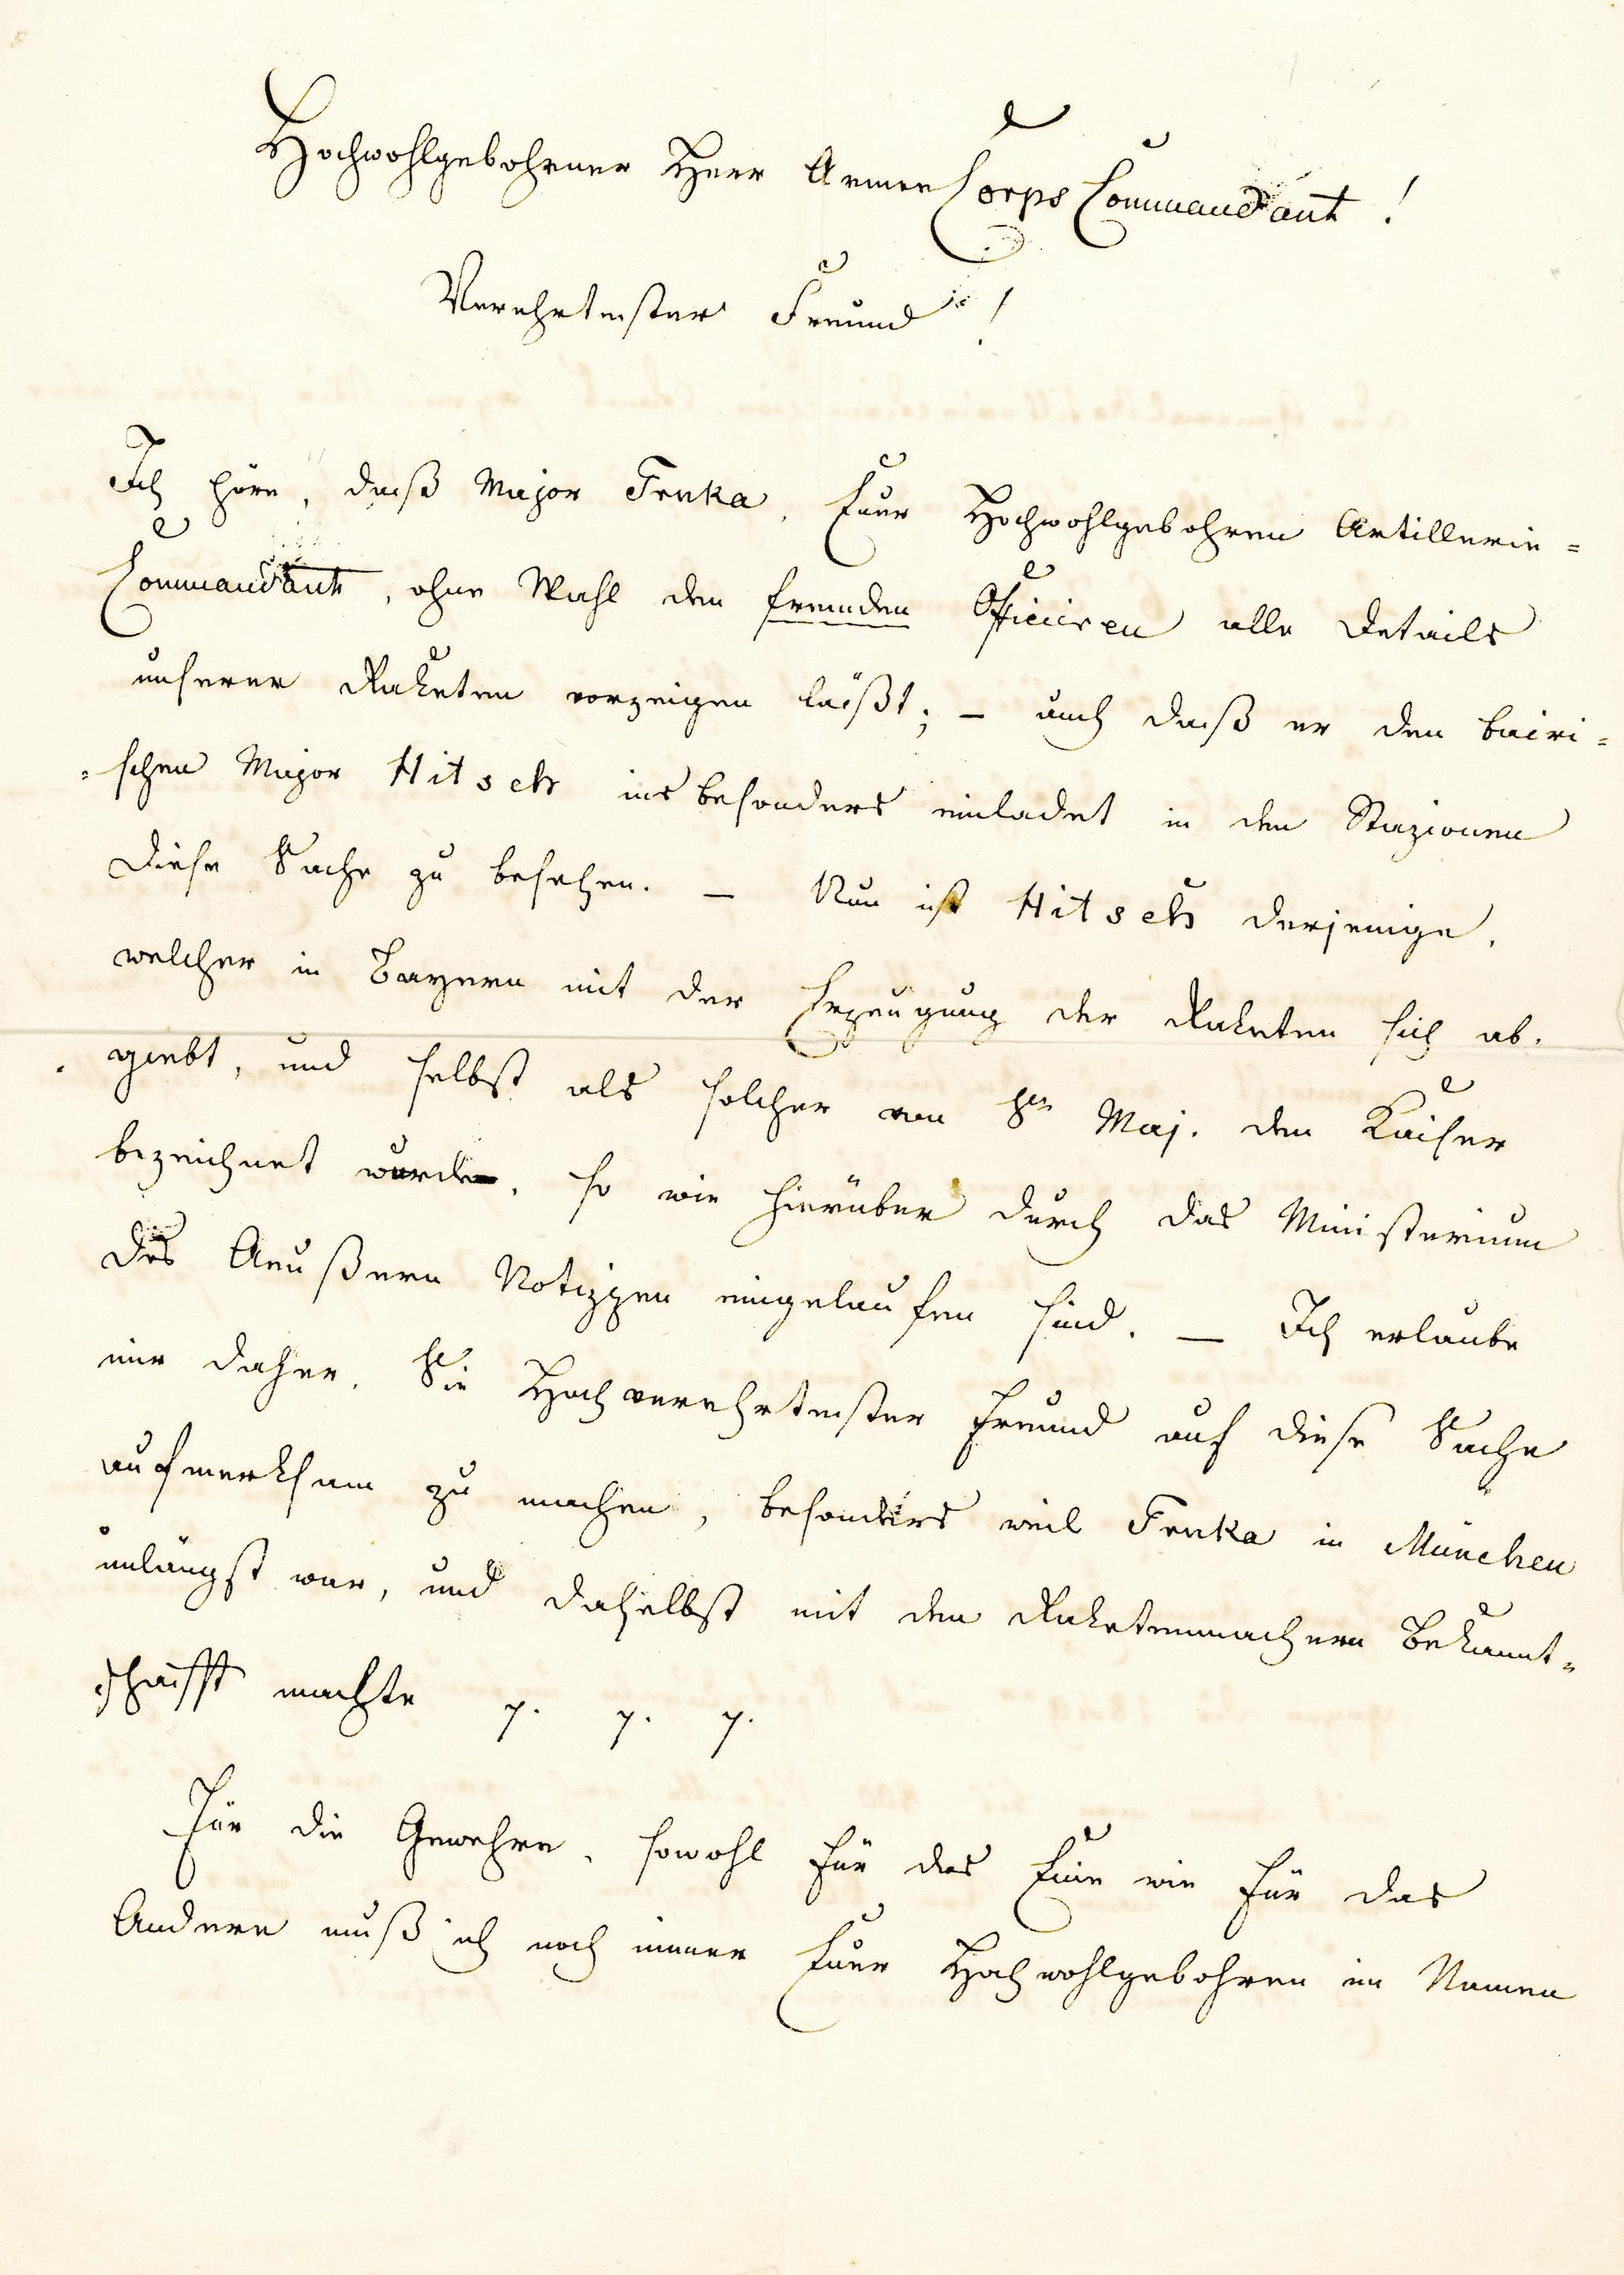 Hochwohlgebohrner Herr Armee Corps Commandant !
Verehrtester Freund !
Ich höre, daß Major Trnka, Euer Hochwohlgebohren Artillerie=
Commandant, ohne Wahl den fremden Officiren alle Details
unserer Raketen vorzeigen läßt; – auch daß er den bairi=
=schen Major Hitsch insbesonders einladet in den Stazionen
diese Sache zu besehen. – Nun ist Hitsch derjenige,
welcher in Bayern mit der Erzeugung der Raketen sich ab.
giebt, und selbst als solcher von Sr Maj. dem Kaiser
bezeichnet wurde, so wie hierüber durch das Ministerium
des Aeußern Notizzen eingelaufen sind. – Ich erlaube
mir daher, Sie Hochverehrtester Freund auf diese Sache
aufmerksam zu machen, besonders weil Trnka in München
unlängst war, und daselbst mit den Raketenmachern Bekannt=
schafft machte
Für die Gewehre, sowohl für das Eine wie für das
Andere muß ich noch immer Euer Hochwohlgebohren im Namen